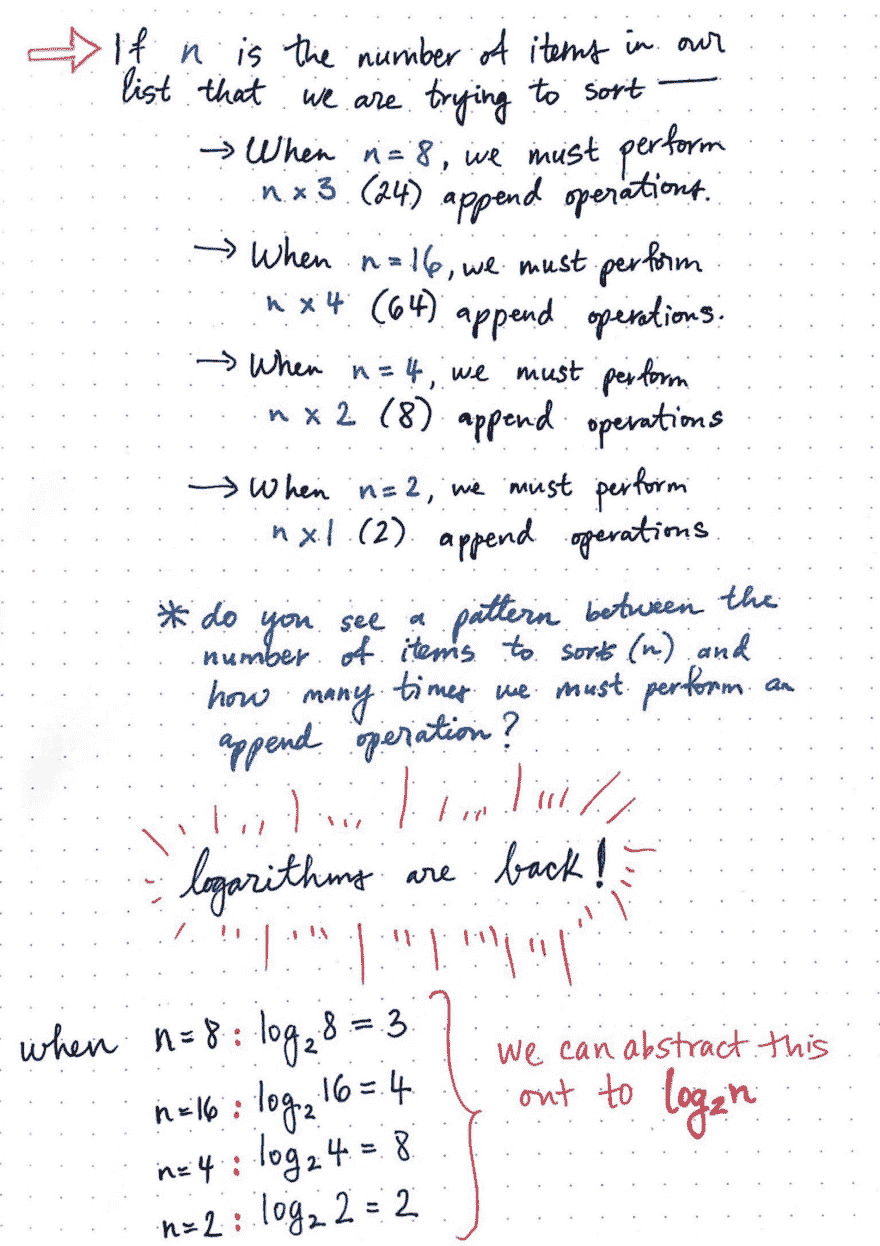 ⇒ If n is the number of items in our
list that we are trying to sort —
→ When n = 8, we must perform
n x 3 (24) append operations.
→ When n = 16, we must perform
n x 4 (64) append operations.
→ When n = 4, we must perform
n x 2 (8) append operations
→ When n = 2, we must perform
n x 1 (2) append operations
* do you see a pattern between the
number of items to sort (n) and
how many times we must perform an
append operation?
logarithms are back!
when n = 8 : log₂ 8 = 3
n = 16 : log₂ 16 = 4
n = 4 : log₂ 4 = 8
n = 2 : log₂ 2 = 2
we can abstract this
out to log₂n